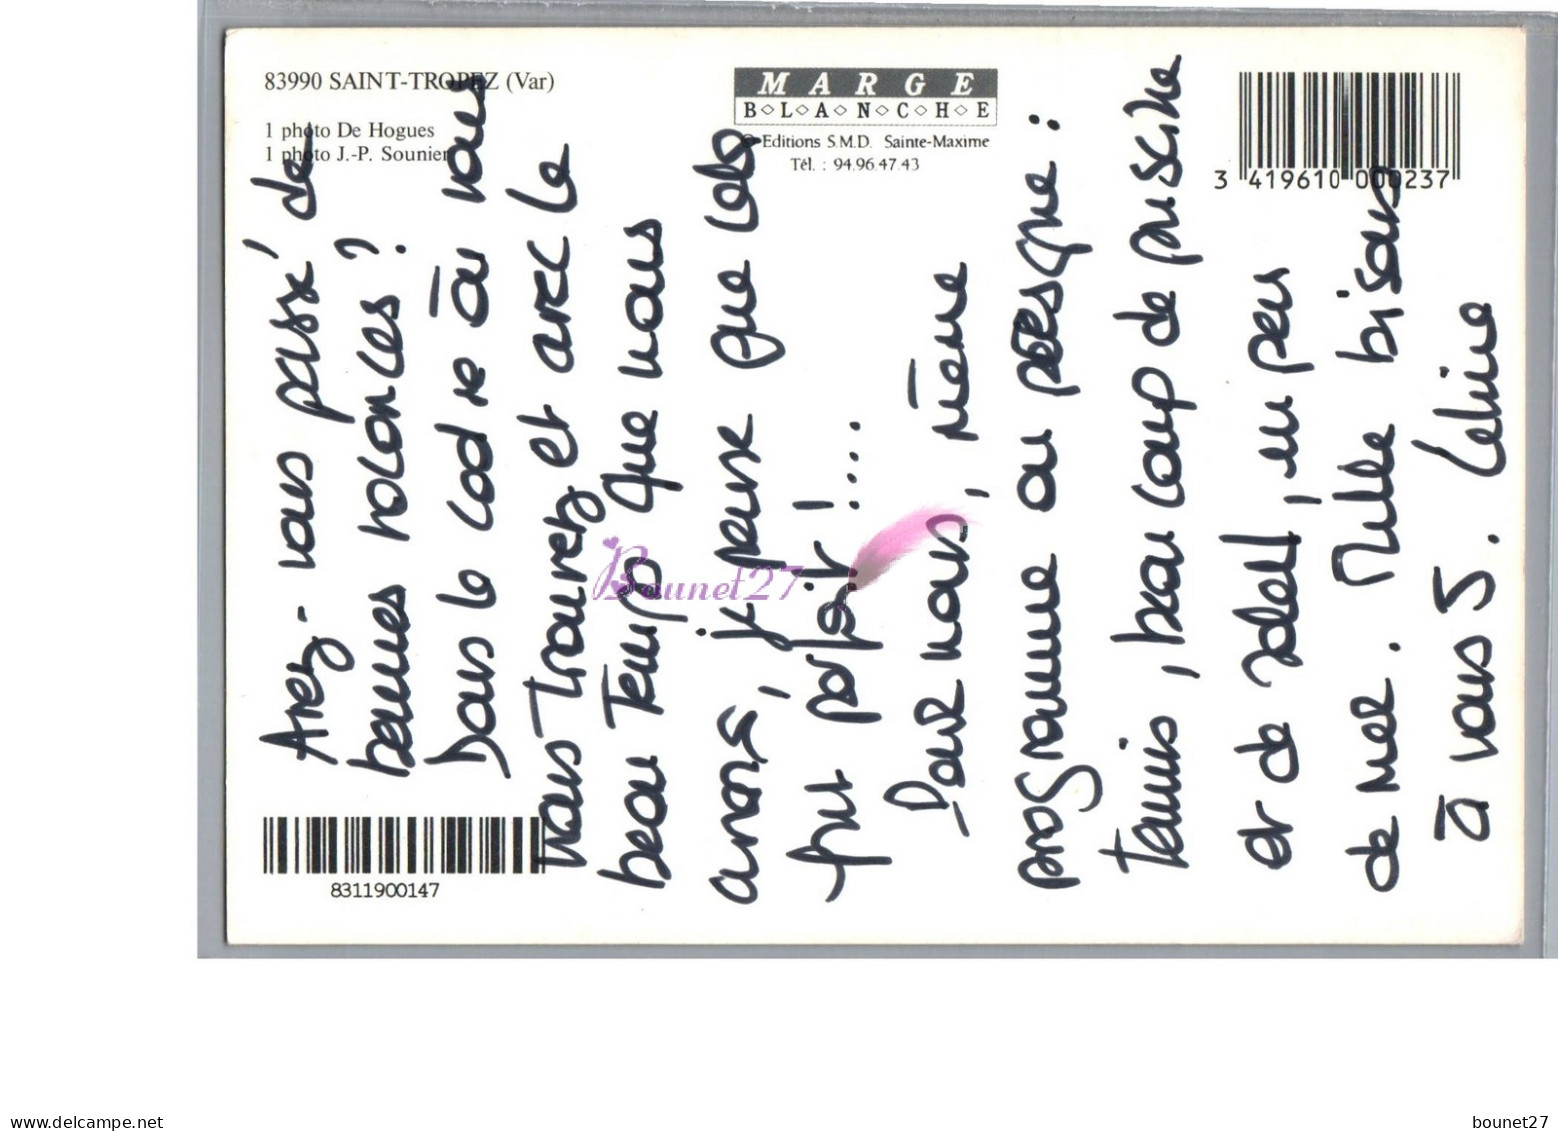 83990 SAINT-TROPEZ (Var)
1 photo De Hogues
1 photo J.-P. Sounier
MARGE
B◇L◇A◇N◇C◇H◇E
© Editions S.M.D. Sainte-Maxime
Tél. : 94.96.47.43
3 419610 000237
Avez-vous passé de
bonnes vacances ?
Dans le cadre où vous
vous trouvez et avec le
beau temps que nous
avons, je pense que cela
fut parfait !....
Pour nous, même
programme ou presque :
Tennis, beaucoup de piscine
et de soleil, un peu
de mer. Mille bisous
à vous 5. Céline
8311900147
Bounet27
www.delcampe.net
bounet27